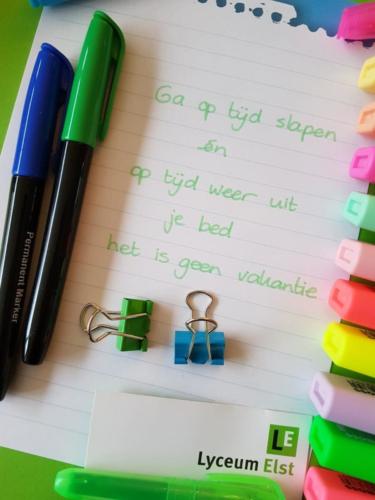 Ga op tijd slapen
én
op tijd weer uit
je bed
het is geen vakantie
Permanent Marker
LE
Lyceum Elst